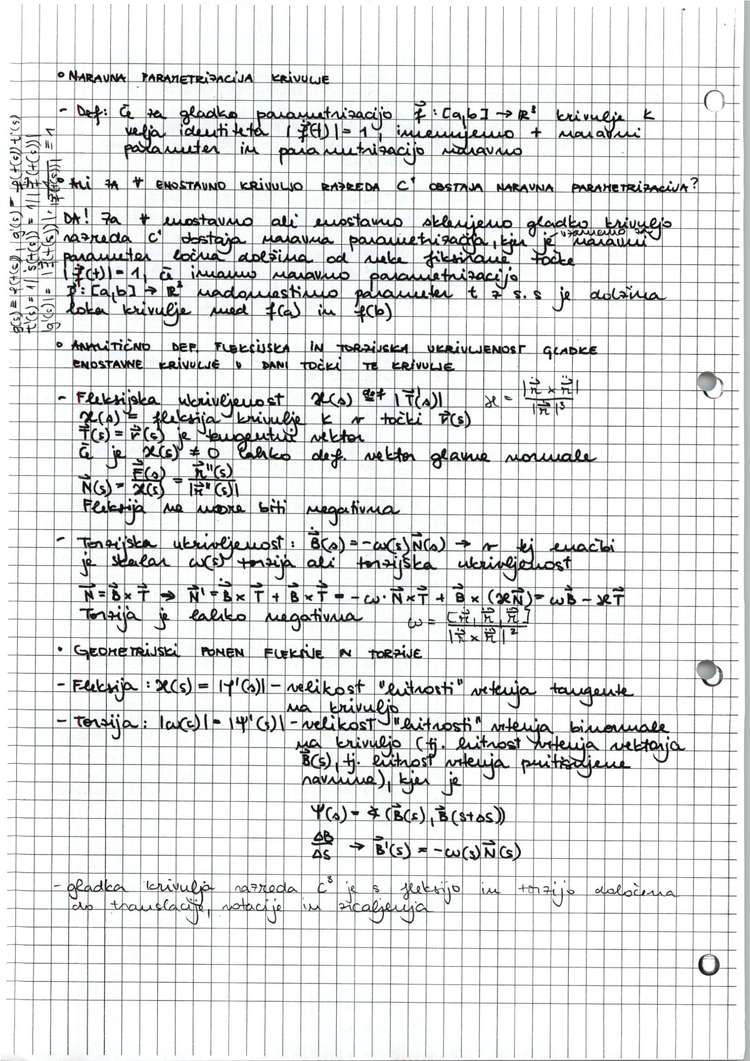 • NARAVNA PARAMETRIZACIJA KRIVULJE
- Def: Če za gladko parametrizacijo f⃗: [a,b] → ℝ³ krivulje K
velja identiteta |f⃗̇(t)| = 1, imenujemo t naravni
parameter in parametrizacijo naravno
• Ali ZA ∀ ENOSTAVNO KRIVULJO RAZREDA C¹ OBSTAJA NARAVNA PARAMETRIZACIJA?
DA! Za ∀ enostavno ali enostavno sklenjeno gladko krivuljo
razreda C¹ obstaja naravna parametrizacija, kjer je vzamemo za naravni
parameter ločna dolžina od neke fiksirane točke
|f⃗̇(t)| = 1, če imamo naravno parametrizacijo
r⃗: [a,b] → ℝ³ nadomestimo parameter t z s. s je dolžina
loka krivulje med f(a) in f(b)
g(s) = f(t(s)), g'(s) = f'(t(s))·t'(s)
t'(s) = 1/s'(t(s)) = 1/|f⃗̇(t(s))|
|g'(s)| = |f⃗̇(t(s))|·1/|f⃗̇(t(s))| = 1
• ANALITIČNO DEF. FLEKSIJSKA IN TORZIJSKA UKRIVLJENOST GLADKE
ENOSTAVNE KRIVULJE V DANI TOČKI TE KRIVULJE
- Fleksijska ukrivljenost ϰ(s) def= |T⃗̇(s)| ϰ = |r⃗̇ × r⃗̈| / |r⃗̇|³
ϰ(s) = fleksija krivulje K v točki r⃗(s)
T⃗(s) = r⃗̇(s) je tangentni vektor
Če je ϰ(s) ≠ 0 lahko def. vektor glavne normale
N⃗(s) = T⃗̇(s)/ϰ(s) = r⃗''(s)/|r⃗''(s)|
Fleksija ne more biti negativna
- Torzijska ukrivljenost: B⃗̇(s) = -ω(s)N⃗(s) → v tej enačbi
je skalar ω(s) torzija ali torzijska ukrivljenost
N⃗ = B⃗ × T⃗ ⇒ N⃗' = B⃗̇ × T⃗ + B⃗ × T⃗̇ = -ω·N⃗ × T⃗ + B⃗ × (ϰN⃗) = ωB⃗ - ϰT⃗
Torzija je lahko negativna ω = [r⃗̇, r⃗̈, r⃗⃛] / |r⃗̇ × r⃗̈|²
• GEOMETRIJSKI POMEN FLEKSIJE IN TORZIJE
- Fleksija: ϰ(s) = |φ'(s)| - velikost "hitrosti" vrtenja tangente
na krivuljo
- Torzija: |ω(s)| = |ψ'(s)| - velikost "hitrosti" vrtenja binormale
na krivuljo (tj. hitrost vrtenja vektorja
B⃗(s), tj. hitrost vrtenja pritisnjene
ravnine), kjer je
ψ(s) = ∢(B⃗(s), B⃗(s+Δs))
ΔB/ΔS → B⃗'(s) = -ω(s)N⃗(s)
- gladka krivulja razreda C³ je s fleksijo in torzijo določena
do translacije, rotacije in zrcaljenja